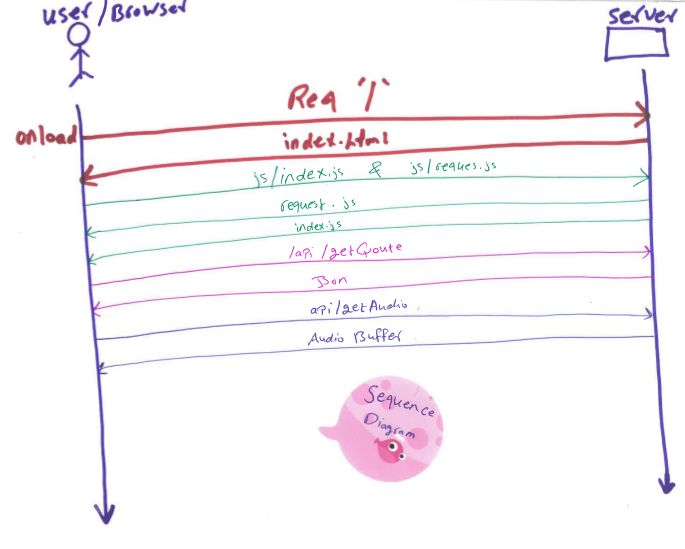 user/Browser
server
Req "/"
onload
index.html
js/index.js & js/reques.js
request.js
index.js
/api/getQoute
Json
api/getAudio
Audio Buffer
Sequence
Diagram